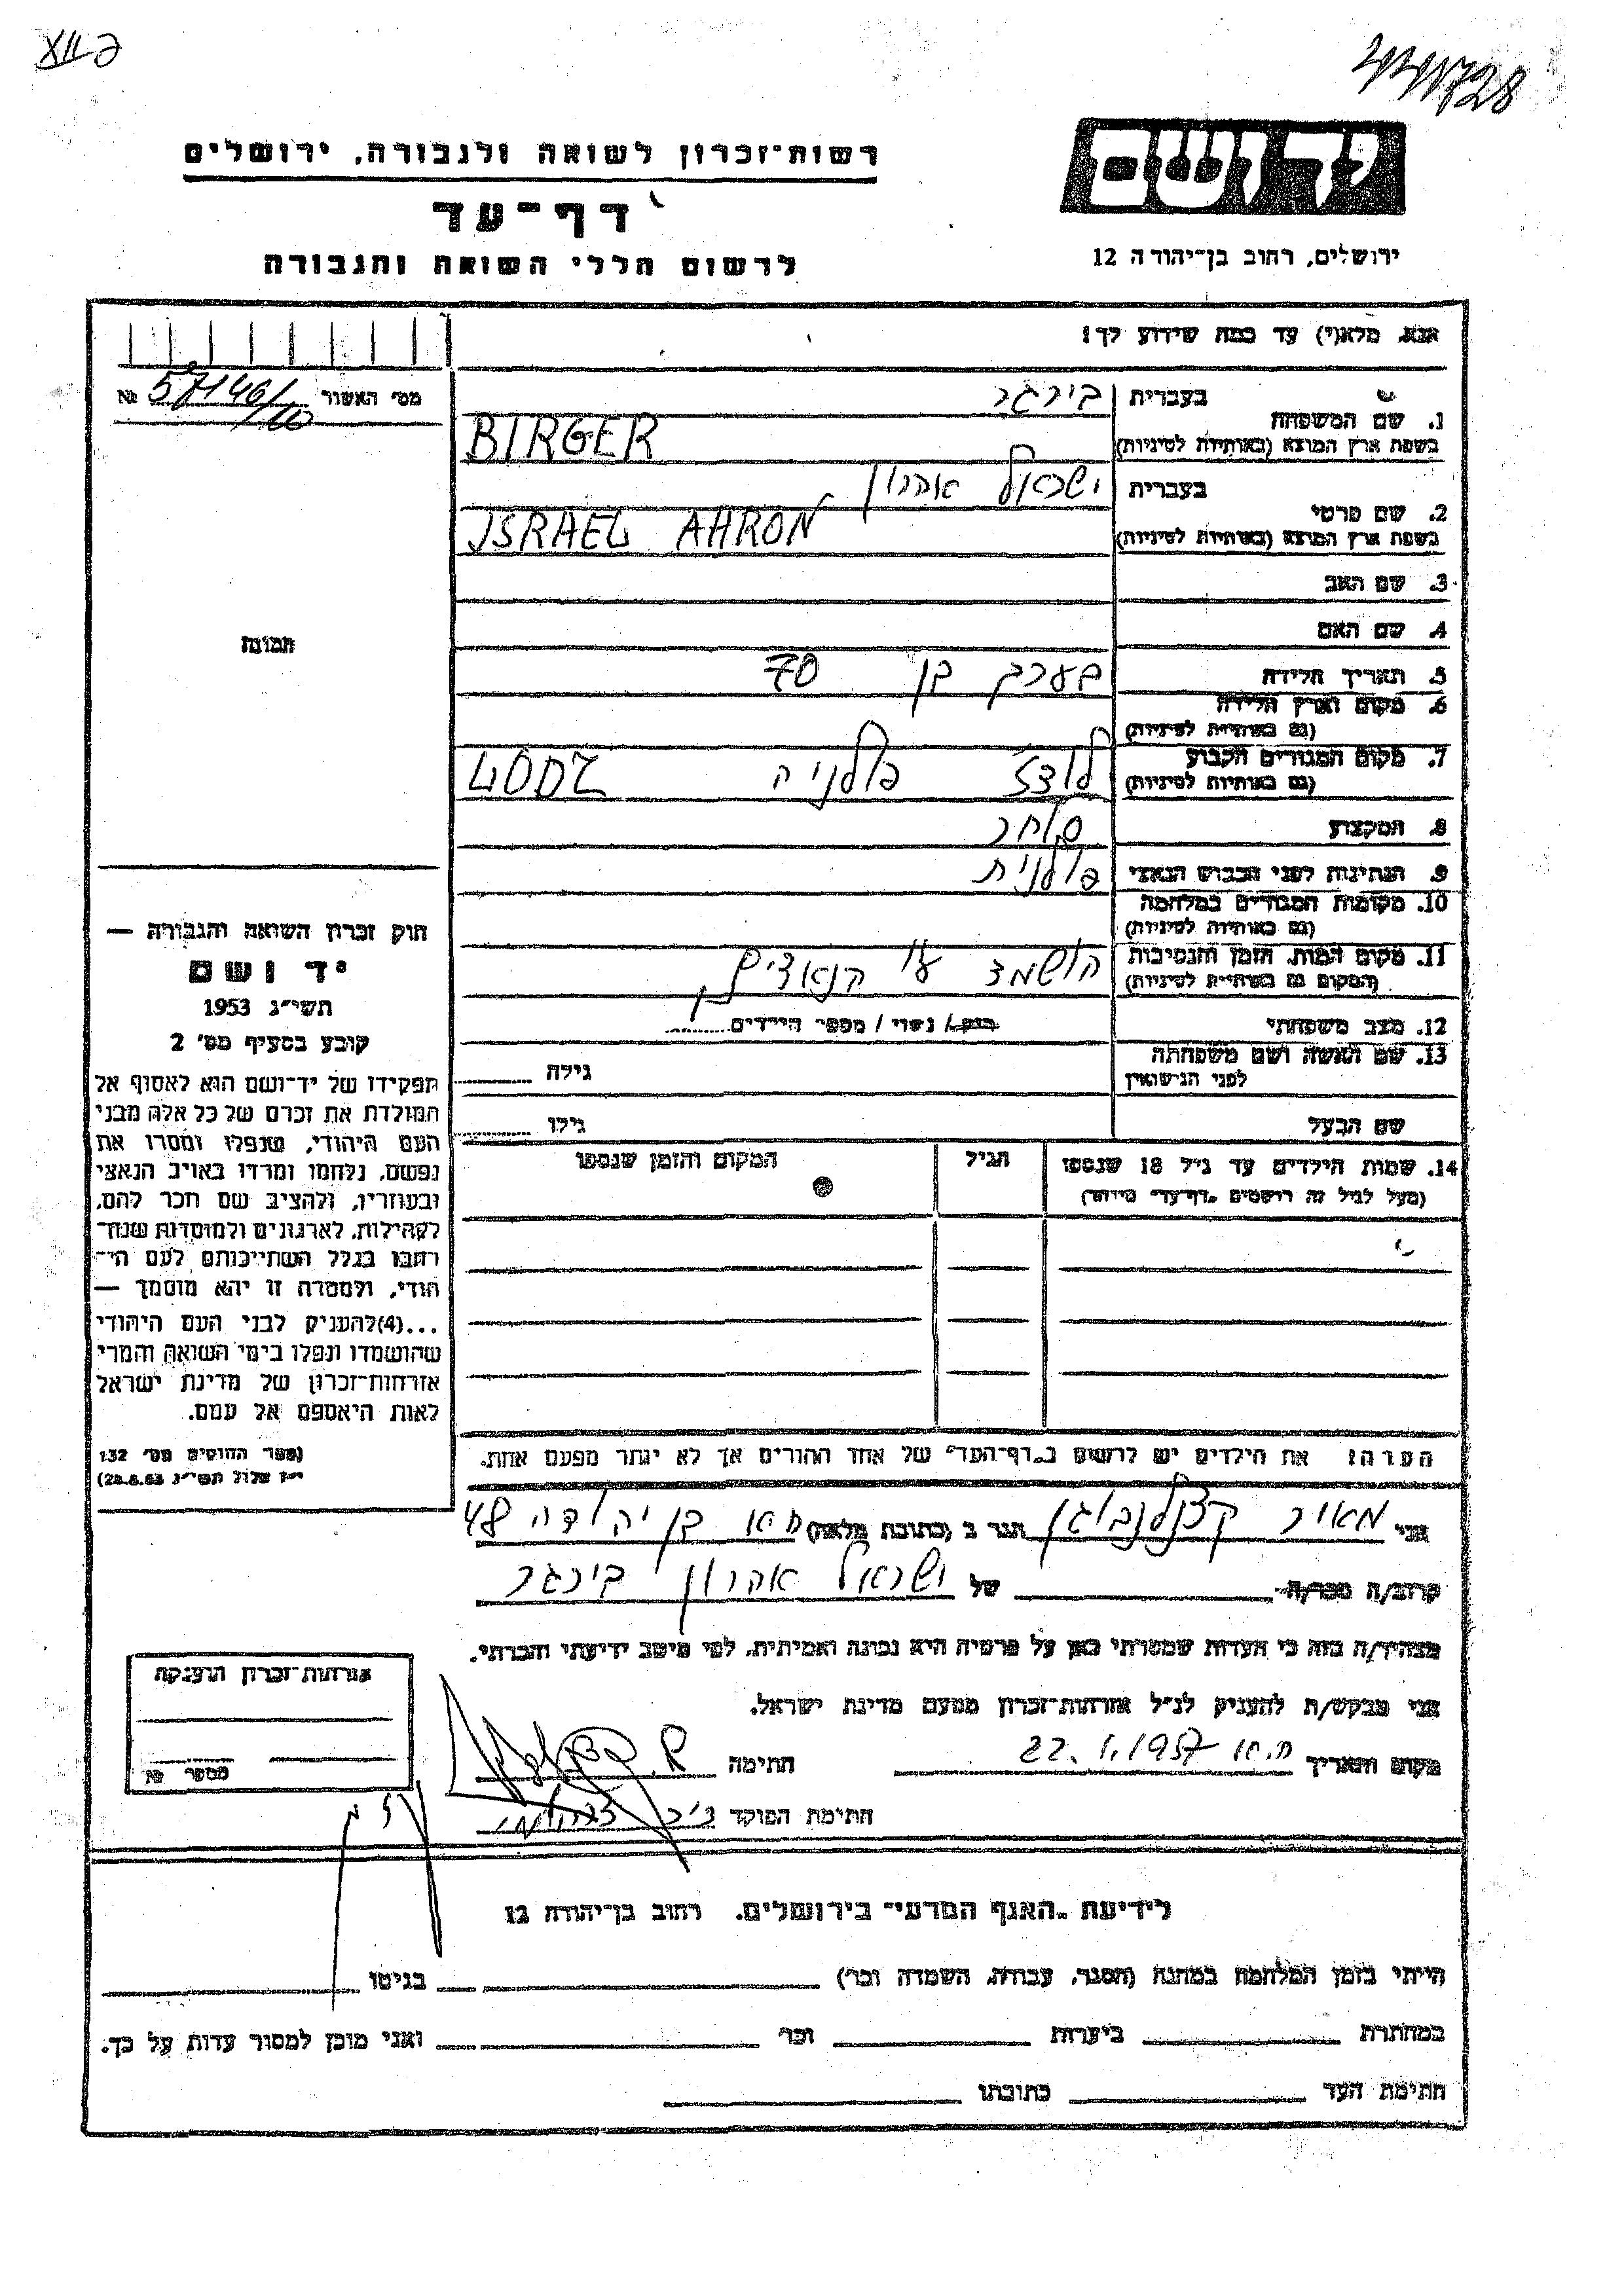 יד ושם
ירושלים, רחוב בן־יהודה 12
רשות־זכרון לשואה ולגבורה, ירושלים
דף־עד
לרשום חללי השואה והגבורה
אנא, מלא(י) עד כמה שידוע לך!
מס׳ האשור № 57146/60
1. שם המשפחה
בעברית בירגר
בשפת ארץ המוצא (באותיות לטיניות) BIRGER
2. שם פרטי
בעברית ישראל אהרון
בשפת ארץ המוצא (באותיות לטיניות) ISRAEL AHRON
3. שם האב
4. שם האם
5. תאריך הלידה בערך בן 70
6. מקום וארץ הלידה
(גם באותיות לטיניות)
7. מקום המגורים הקבוע לודז פולניה LODZ
(גם באותיות לטיניות)
8. המקצוע סוחר
9. הנתינות לפני הכבוש הנאצי פולנית
10. מקומות המגורים במלחמה
(גם באותיות לטיניות)
11. מקום המות, הזמן והנסיבות הושמד ע״י הנאצים
(המקום גם באותיות לטיניות)
12. מצב משפחתי רווק / נשוי / מספר הילדים
13. שם האשה ושם משפחתה גילה
לפני הנישואין
שם הבעל גילו
14. שמות הילדים עד גיל 18 שנספו הגיל המקום והזמן שנספו
(מעל לגיל זה רושמים „דף־עד״ מיוחד)
הערה! את הילדים יש לרשום ב„דף־העד״ של אחד ההורים אך לא יותר מפעם אחת.
תמונה
חוק זכרון השואה והגבורה —
יד ושם
תשי״ג 1953
קובע בסעיף מס׳ 2
תפקידו של יד־ושם הוא לאסוף אל
המולדת את זכרם של כל אלה מבני
העם היהודי, שנפלו ומסרו את
נפשם, נלחמו ומרדו באויב הנאצי
ובעוזריו, ולהציב שם וזכר להם,
לקהילות, לארגונים ולמוסדות שנח־
רבו בגלל השתייכותם לעם הי־
הודי, ולמטרה זו יהא מוסמך —
...(4)להעניק לבני העם היהודי
שהושמדו ונפלו בימי השואה והמרי
אזרחות־זכרון של מדינת ישראל
לאות היאספם אל עמם.
(ספר החוקים מס׳ 132
י״ז אלול תשי״ג 28.8.53)
אני מאיר קצנלנבוגן הגר ב (כתובת מלאה) בן יהודה 48
קרוב/ה מכר/ה של ישראל אהרון בירגר
מצהיר/ה בזה כי העדות שמסרתי כאן על פרטיה היא נכונה ואמיתית, לפי מיטב ידיעתי והכרתי.
אני מבקש/ת להעניק לנ״ל אזרחות־זכרון מטעם מדינת ישראל.
מקום ותאריך 22.1.1957 חתימה
חתימת הפוקד
אזרחות־זכרון הוענקה
מספר №
לידיעת „האגף המדעי״ בירושלים, רחוב בן־יהודה 12
הייתי בזמן המלחמה במחנה (הסגר, עבודה, השמדה וכו׳) בגיטו
במחתרת ביערות וכו׳ ואני מוכן למסור עדות על כך.
חתימת העד כתובתו